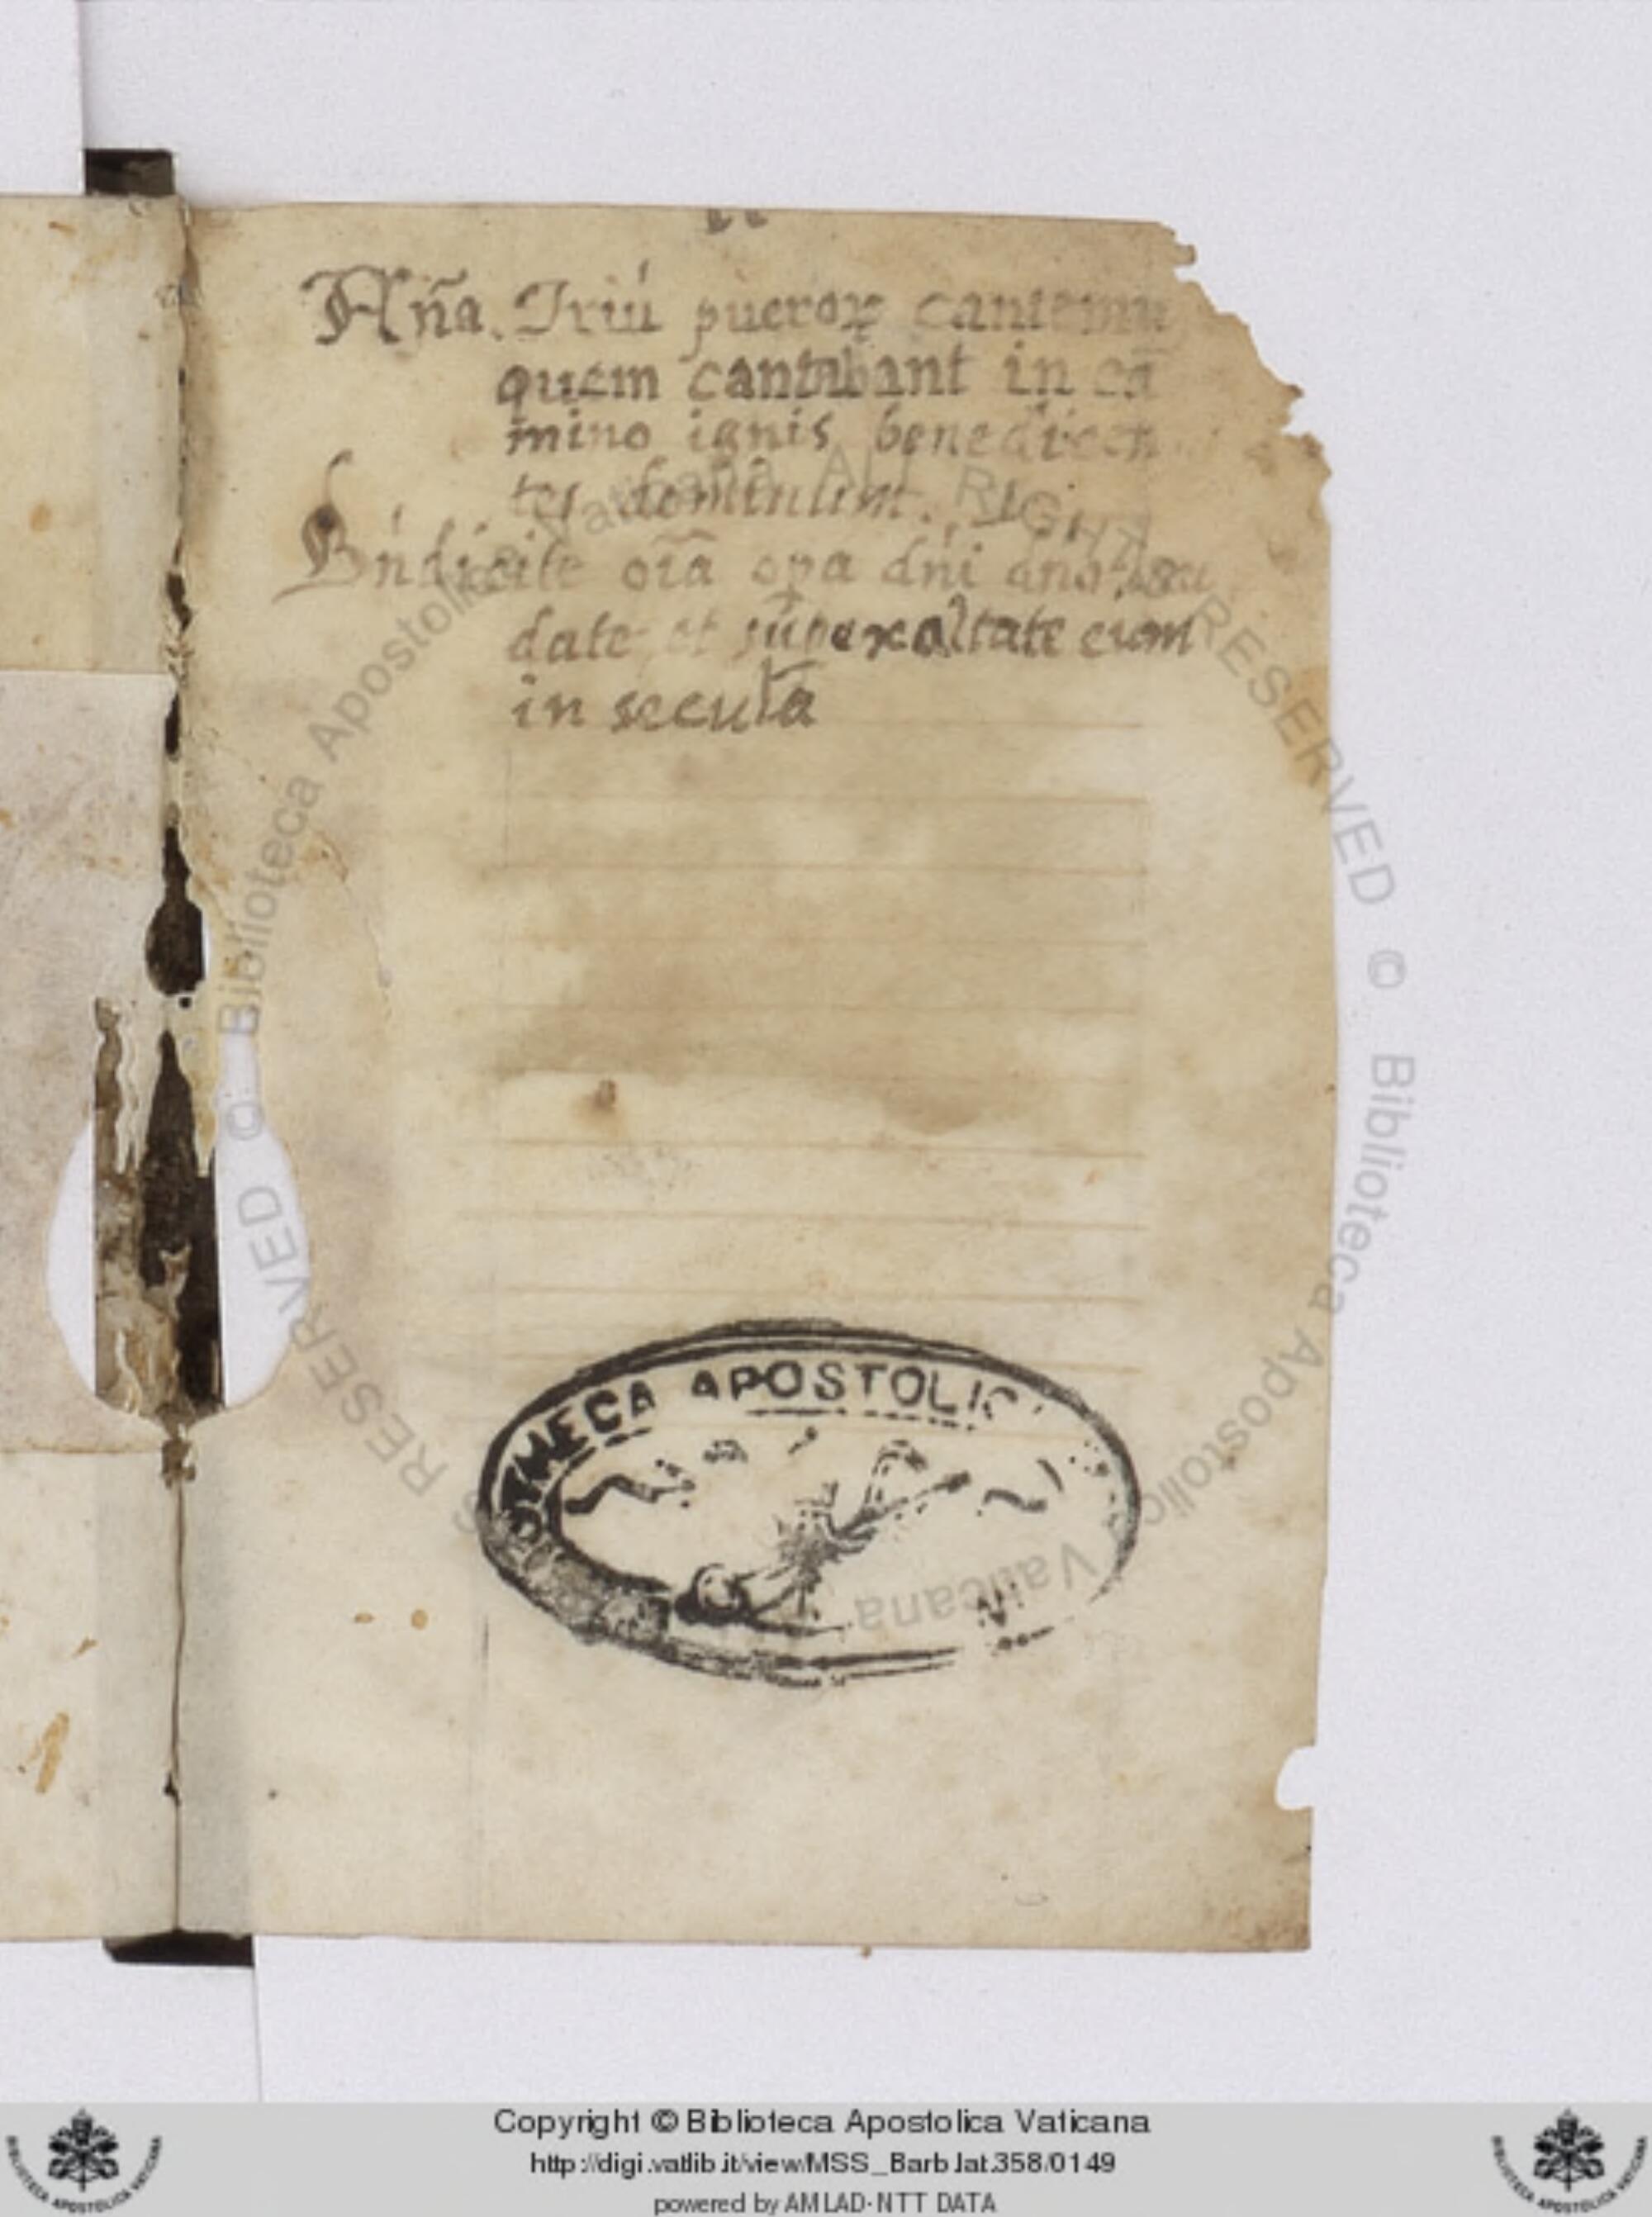 Aña. Triú pueroꝝ cantemu
quem cantabant in cā
mino ignis benedicen
tes dominum.
Bńdicite oīa opa dńi dño lau
date et superexaltate eum
in secula
BIBLIOTHECA APOSTOLIC
© Biblioteca Apostolica Vaticana ALL RIGHTS RESERVED © Biblioteca Apostolica Vaticana
RESERVED
Copyright © Biblioteca Apostolica Vaticana
http://digi.vatlib.it/view/MSS_Barb.lat.358/0149
powered by AMLAD-NTT DATA
BIBLIOTECA APOSTOLICA VATICANA
BIBLIOTECA APOSTOLICA VATICANA